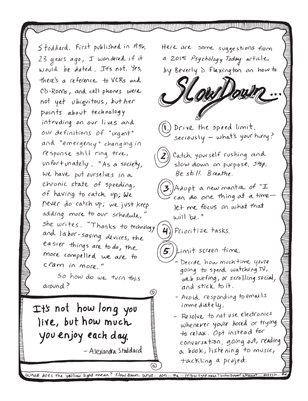 Stoddard. First published in 1994,
23 years ago, I wondered if it
would be dated. It's not. Yes,
there's a reference to VCRs and
CD-Roms, and cell phones were
not yet ubiquitous, but her
points about technology
intruding on our lives and
our definitions of "urgent"
and "emergency" changing in
response still ring true,
unfortunately. "As a society,
we have put ourselves in a
chronic state of speeding,
of having to catch up; We
never do catch up; we just keep
adding more to our schedule,"
she writes. "Thanks to technology
and labor-saving devices, the
easier things are to do, the
more compelled we are to
cram in more."
So how do we turn this
around?
It's not how long you
live, but how much
you enjoy each day.
— Alexandra Stoddard
Here are some suggestions from
a 2015 Psychology Today article
by Beverly D. Flaxington on how to
Slow Down...
1 Drive the speed limit,
seriously — what's your hurry?
2 Catch yourself rushing and
slow down on purpose. Stop.
Be still. Breathe.
3 Adopt a new mantra of "I
can do one thing at a time —
let me focus on what that
will be."
4 Prioritize tasks.
5 Limit screen time.
- Decide how much time you're
going to spend watching TV,
web surfing, or scrolling social,
and stick to it.
- Avoid responding to emails
immediately.
- Resolve to not use electronics
whenever you're bored or trying
to relax. Opt instead for
conversation, going out, reading
a book, listening to music,
tackling a project.
What does the yellow light mean? Slow down. What